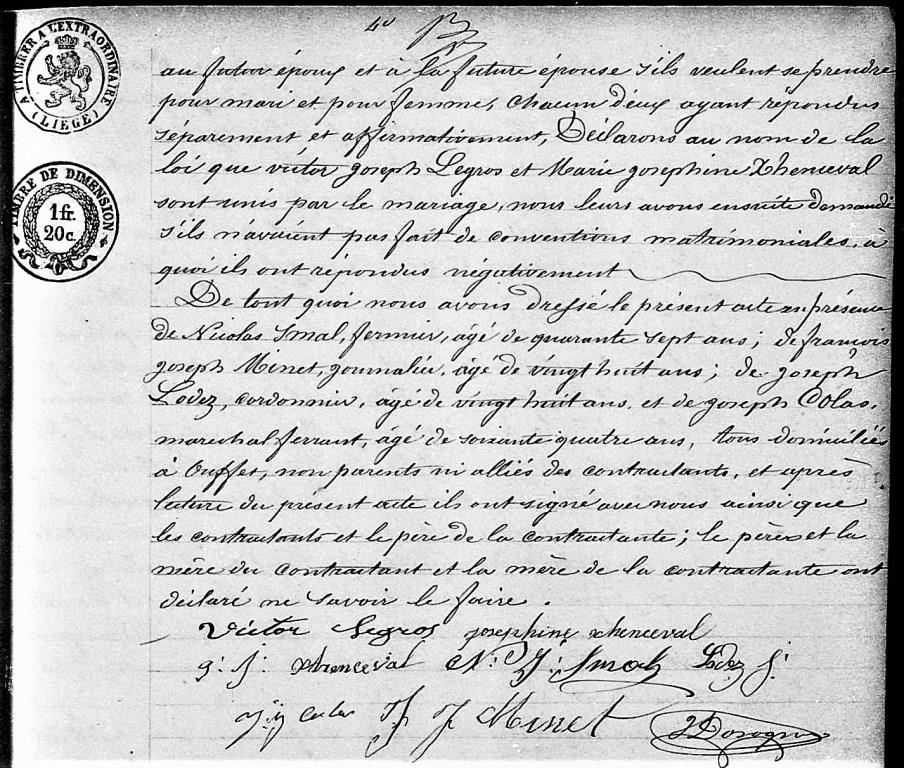 A TIMBRER A L'EXTRAORDINAIRE
(LIEGE)
TIMBRE DE DIMENSION
1 fr.
20 c.
au futur époux et à la future épouse s'ils veulent se prendre
pour mari et pour femme, chacun d'eux ayant répondus
séparement et affirmativement, Déclarons au nom de la
loi que victor joseph Legros et Marie josephine Xhenceval
sont unis par le mariage, nous leurs avons ensuite demandé
s'ils n'avaient pas fait de conventions matrimoniales, à
quoi ils ont répondus négativement
De tout quoi nous avons dressé le présent acte en présence
de Nicolas Smal, fermier, âgé de quarante sept ans ; de françois
joseph Minet, journalier, âgé de vingt huit ans ; de joseph
Lodez, cordonnier, âgé de vingt huit ans, et de joseph Colas,
marechal ferrant, âgé de soixante quatre ans, tous domiciliés
à Ouffet, non parents ni alliés des contractants, et après
lecture du présent acte ils ont signé avec nous ainsi que
les contractants et le père de la contractante ; le père et la
mère du contractant et la mère de la contractante ont
déclaré ne savoir le faire .
Victor Legros josephine xhenceval
g. j. xhenceval N. J. Smal Lodez j.
Colas f j Minet